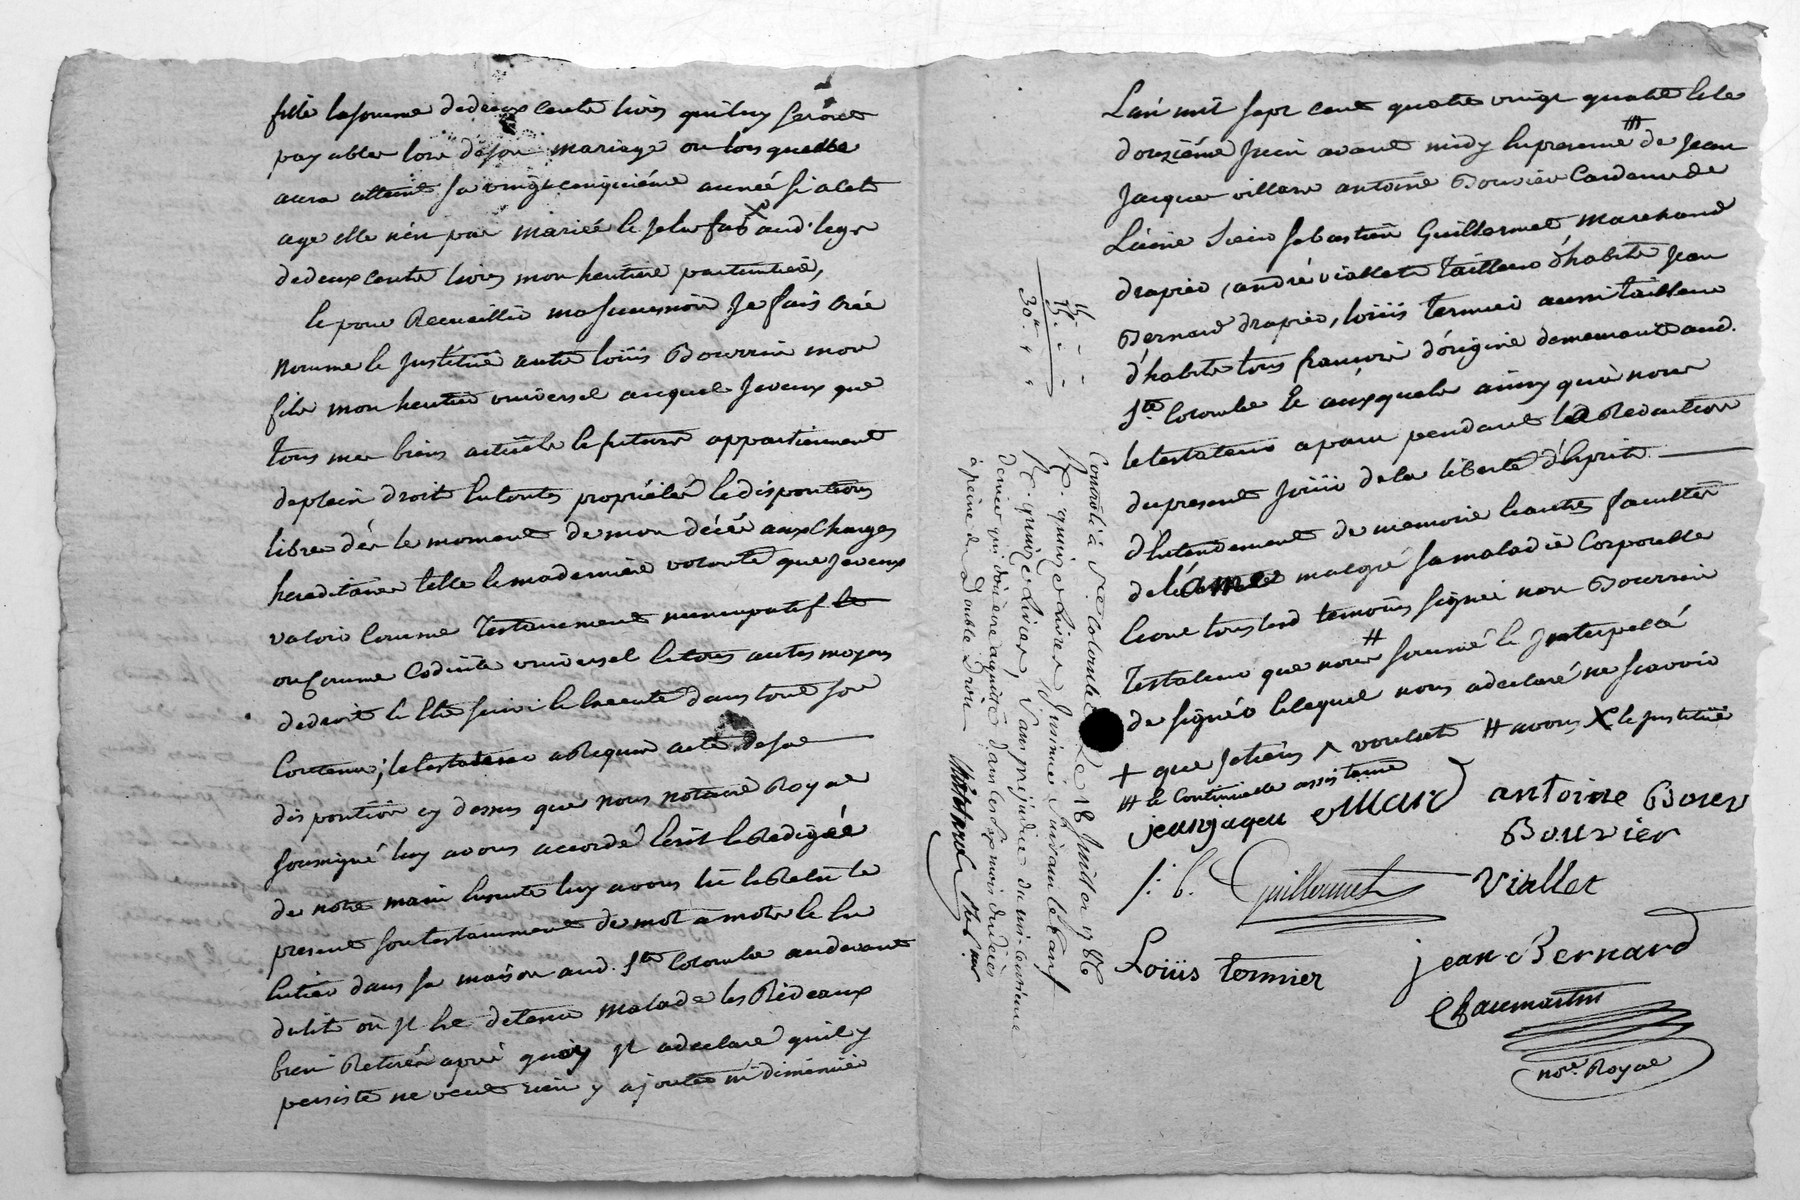 fille la somme de deux cents livres qui luy seront
payables lors de son mariage ou lors quelle
aura atteint sa vingt cinquiéme année si a cet
age elle n'est pas mariée je la fais X aud. legs
de deux cents livres mon heritiere particuliere,
et pour Recueillir ma succession je fais crée
nomme et Justitue ledit loüis Bourrin mon
fils mon heritier universel auquel je veux que
tous mes biens actuels et futurs appartiennent
de plein droit en toutes propriétés et dispositions
libres dés le moment de mon décés aux charges
hereditaires telle est ma derniere volonté que je veux
valoir comme Testament nuncupatif
ou comme Codicile universel et tous autres moyens
de droit et etre suivi et executé dans tout son
Contenu; le testateur a Requis acte de sa
disposition cy dessus que nous notaire Royal
soussigné luy avons accordé Ecrit et Redigée
de notre main ensuite luy avons lu et Relu le
present son testament de mot a mot et en
entier dans sa maison aud. Ste Colombe au devant
du lit où jl est detenu malade les Rideaux
bien Retirés aprés quoy jl a declaré qu'il y
persiste ne veut rien y ajouter ni diminuer
L'an mil sept cent quatre vingt quatre et le
douziéme Juin avant midy en presence ## de Jean
Jacques villard antoine Bouvier Cardeur de
Laine Sieur sebastien Guillermet Marchand
drapier, andré viallet tailleur d'habits Jean
Bernard drapier, loüis termier aussi tailleur
d'habits tous francois d'origine demeurants aud.
Ste. Colombe et auxquels ainsy qu'a nous
le testateur a paru pendant la Redaction
du present Joüir de la liberté d'Esprit
d'Entendement de memoire et autres facultés
de l'ame malgré sa maladie Corporelle
et ont tous lesd temoins signé non Bourrin
testateur que nous # sommé et Jnterpellé
de signer lequel nous a declaré ne sçavoir
+ que # avons X et Justitue
## et Continuelle assistance
jean jaques villard antoine Bouvier
Bouvier
s: b. Guillermet viallet
Loüis termier jean Bernard
Chaumartin
nore. Royal
15. - -
15. - -
30.# " "
Controllé à Ste Colombe Le 18 Juillet 1786
R. quinze Livres
R. quinze Livres, sans préjudice du mi-centieme
denier qui doit etre aquitté dans les six mois du décès
à peine du Double Droit